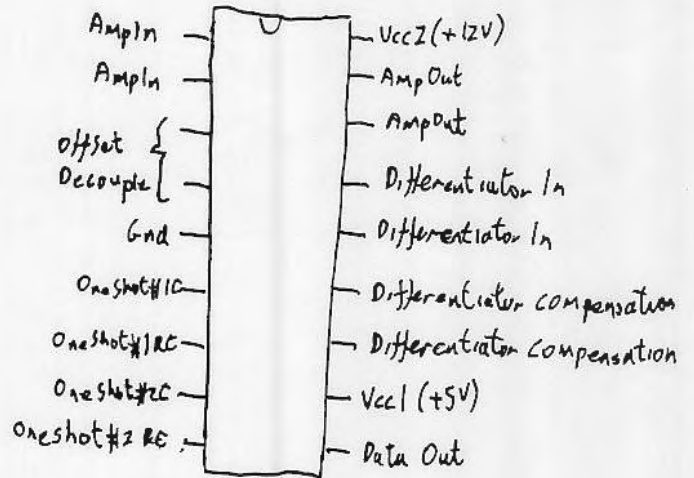 AmpIn
AmpIn
Offset
Decouple
Gnd
OneShot#1C
OneShot#1RC
OneShot#2C
Oneshot#2 RC
Vcc2(+12V)
AmpOut
AmpOut
Differentiator In
Differentiator In
Differentiator Compensation
Differentiator Compensation
Vcc1 (+5V)
Data Out